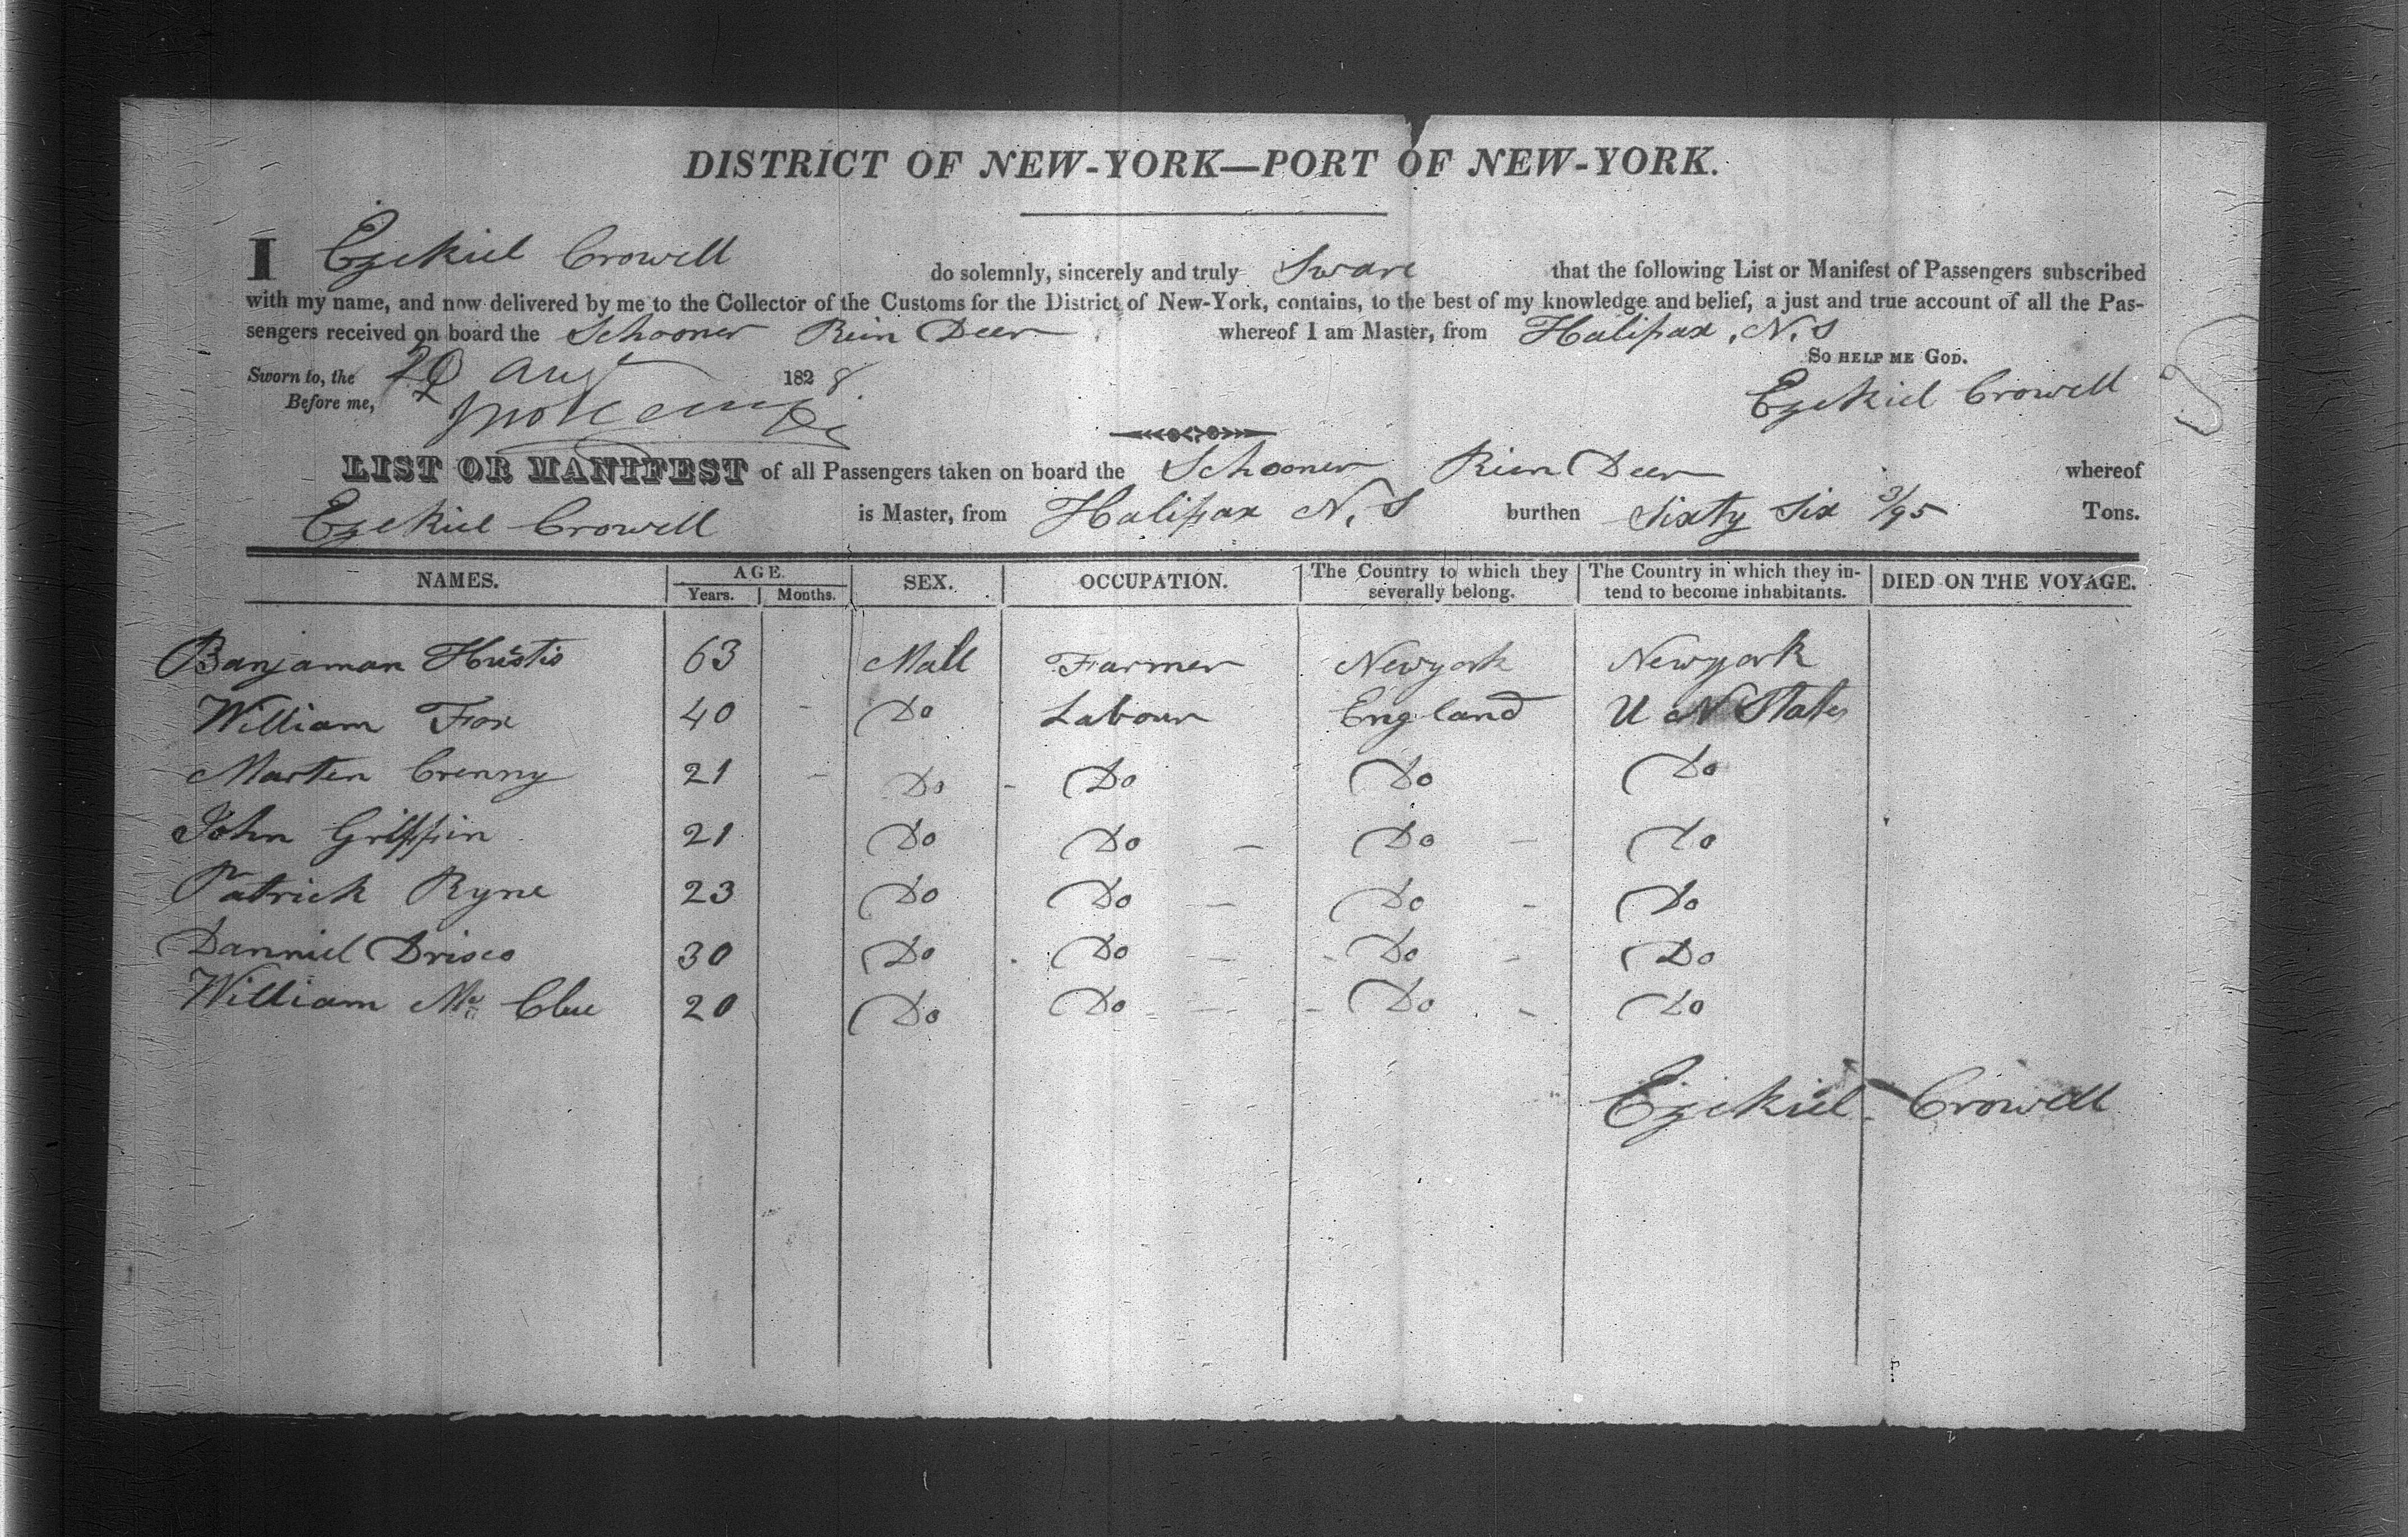 DISTRICT OF NEW-YORK—PORT OF NEW-YORK.
I Ezekiel Crowell do solemnly, sincerely and truly Sware that the following List or Manifest of Passengers subscribed
with my name, and now delivered by me to the Collector of the Customs for the District of New-York, contains, to the best of my knowledge and belief, a just and true account of all the Pas-
sengers received on board the Schooner Rein Deer whereof I am Master, from Halifax, N,S
So help me God.
Sworn to, the Aug 1828
Before me,
Ezekiel Crowell
LIST OR MANIFEST of all Passengers taken on board the Schooner Rien Deer whereof
Ezekiel Crowell is Master, from Halifax N,S burthen Sixty Six 3/95 Tons.
NAMES. AGE. Years. Months. SEX. OCCUPATION. The Country to which they severally belong. The Country in which they in-tend to become inhabitants. DIED ON THE VOYAGE.
Banjaman Hustis 63 Male Farmer Newyork Newyork
William Fox 40 - Do Labour England U N States
Marten Crenny 21 - Do - Do Do Do
John Griffin 21 Do Do - Do - Do
Patrick Ryne 23 Do Do - Do - Do
Danniel Drisco 30 Do Do - Do - Do
William Mc Clue 20 Do Do - Do - Do
Ezekiel Crowell